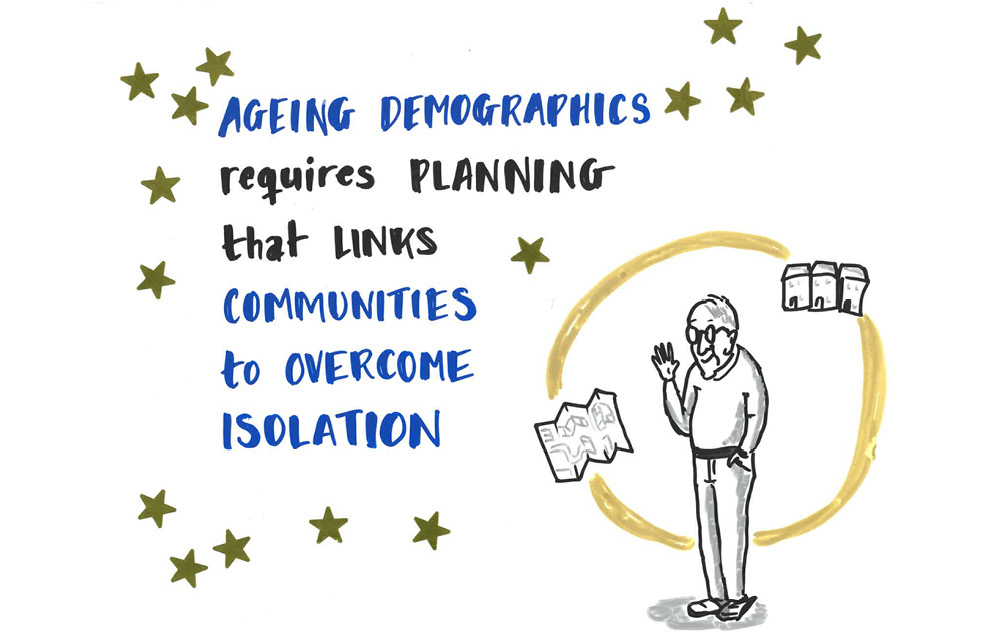 AGEING DEMOGRAPHICS
requires PLANNING
that LINKS
COMMUNITIES
to OVERCOME
ISOLATION